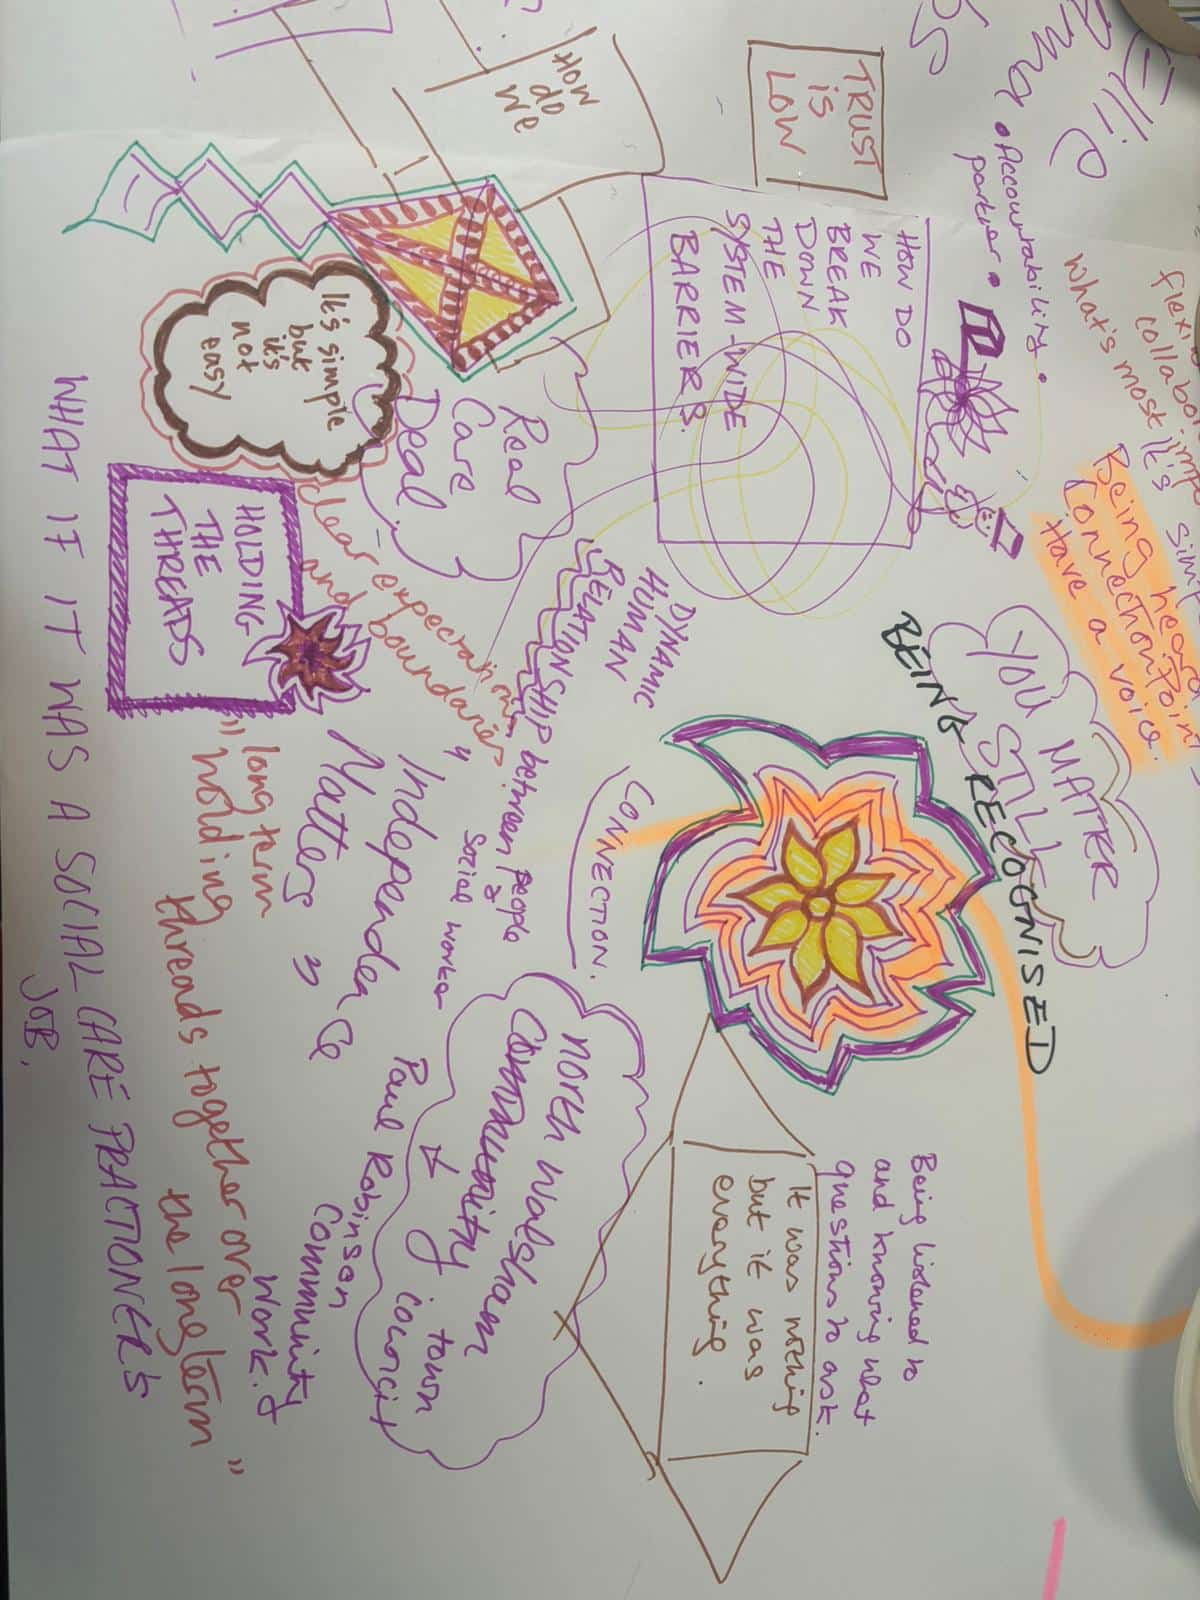 Ellie
• Accountability.
partner •
TRUST
IS
LOW
HOW
do
We
HOW DO
WE
BREAK
DOWN
THE
SYSTEM-WIDE
BARRIERS.
what's most
it's
Being heard
Connection point
Have a voice.
YOU MATTER
STILL
BEING RECOGNISED
Real
Care
Deal.
It's simple
but
it's
not
easy
HOLDING
THE
THREATS
clear expectations
and boundaries
DYNAMIC
HUMAN
RELATIONSHIP between people
&
Social worker
CONNECTION.
"Independence
Matters"
"long term
holding
threads together over
the long term"
North Walsham
Community
town council
Paul Robinson
Community
Work.
Community
Being listened to
and knowing what
questions to ask.
It was nothing
but it was
everything.
WHAT IT IT WAS A SOCIAL CARE PRACTIONERS
JOB.